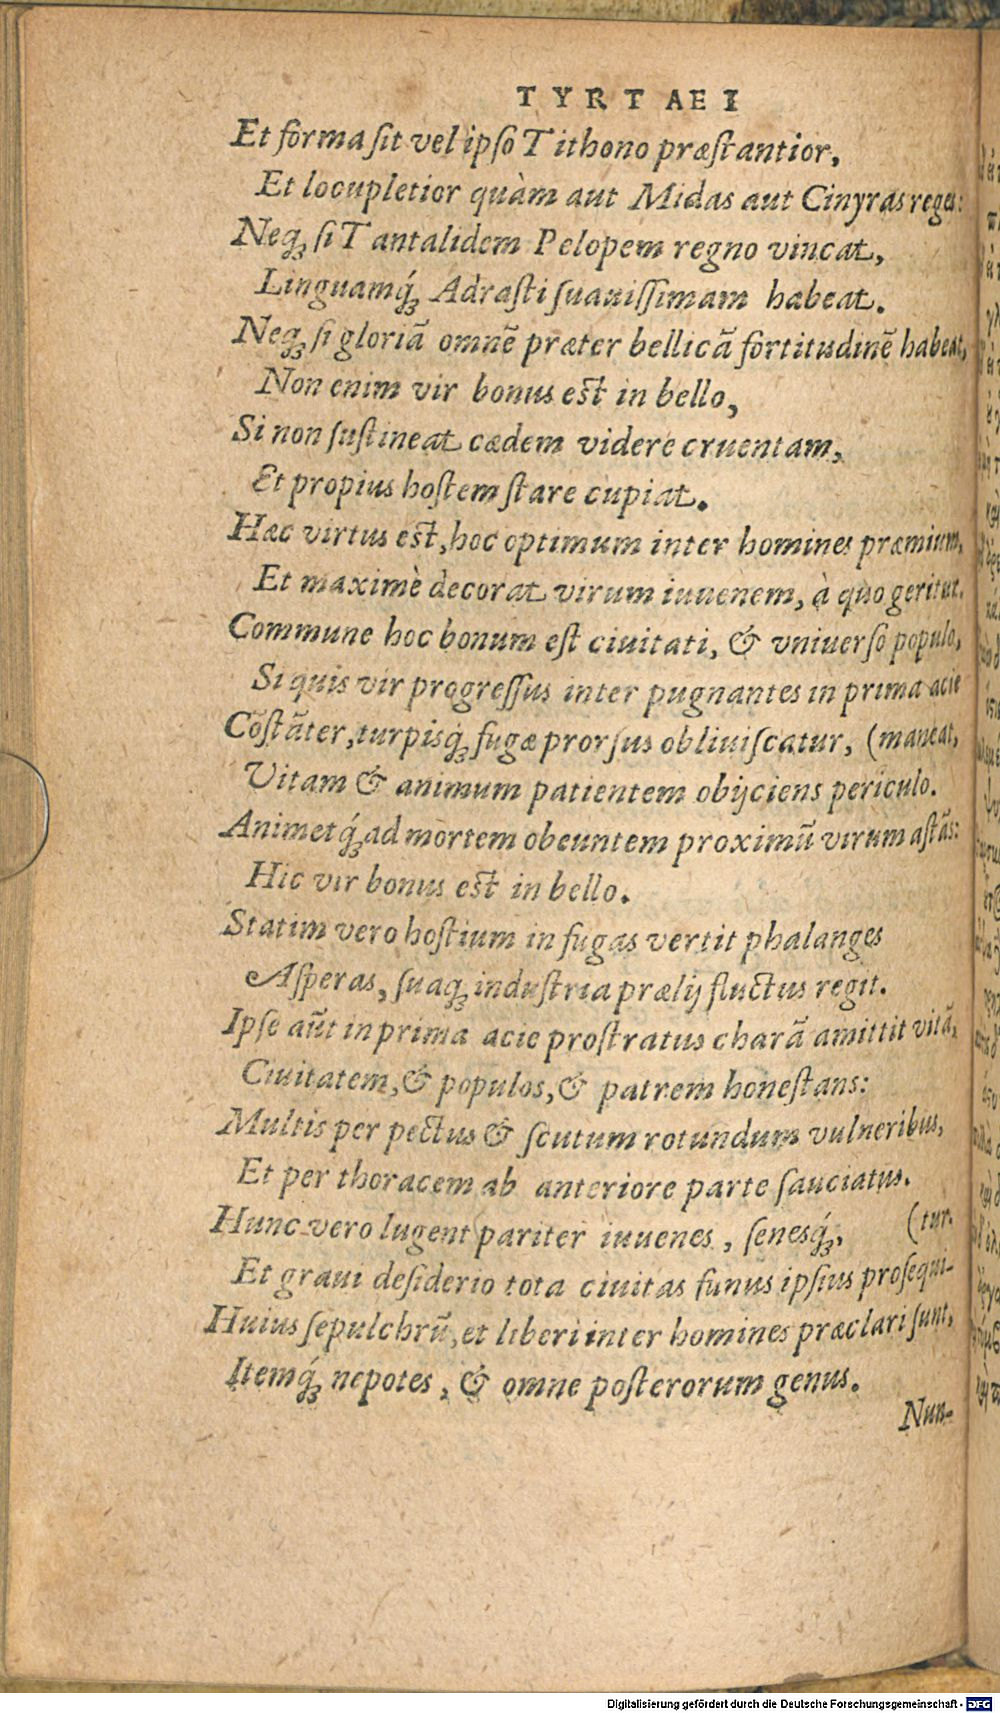 TYRTAEI
Et forma ſit vel ipſo Tithono præſtantior,
Et locupletior quàm aut Midas aut Cinyras reges:
Neq; ſi Tantalidem Pelopem regno vincat,
Linguamq́; Adraſti ſuauiſſimam habeat.
Neq; ſi gloriã omnẽ præter bellicã fortitudinẽ habeat,
Non enim vir bonus eſt in bello,
Si non ſuſtineat cædem videre cruentam,
Et propius hoſtem ſtare cupiat.
Hæc virtus eſt, hoc optimum inter homines præmium,
Et maximè decorat virum iuuenem, à quo geritur.
Commune hoc bonum eſt ciuitati, & vniuerſo populo,
Si quis vir progreſſus inter pugnantes in prima acie
Cõſtãter, turpisq́; fugæ prorſus obliuiſcatur, (maneat,
Vitam & animum patientem obijciens periculo.
Animetq́; ad mortem obeuntem proximũ virum aſtãs:
Hic vir bonus eſt in bello.
Statim vero hoſtium in fugas vertit phalanges
Aſperas, ſuaq; induſtria prælij fluctus regit.
Ipſe aũt in prima acie proſtratus charã amittit vitã,
Ciuitatem, & populos, & patrem honeſtans:
Multis per pectus & ſcutum rotundum vulneribus,
Et per thoracem ab anteriore parte ſauciatus.
Hunc vero lugent pariter iuuenes, ſenesq́;, (tur.
Et graui deſiderio tota ciuitas funus ipſius proſequi-
Huius ſepulchrũ, et liberi inter homines præclari ſunt,
Itemq́; nepotes, & omne poſterorum genus.
Nun-
Digitalisierung gefördert durch die Deutsche Forschungsgemeinschaft - DFG